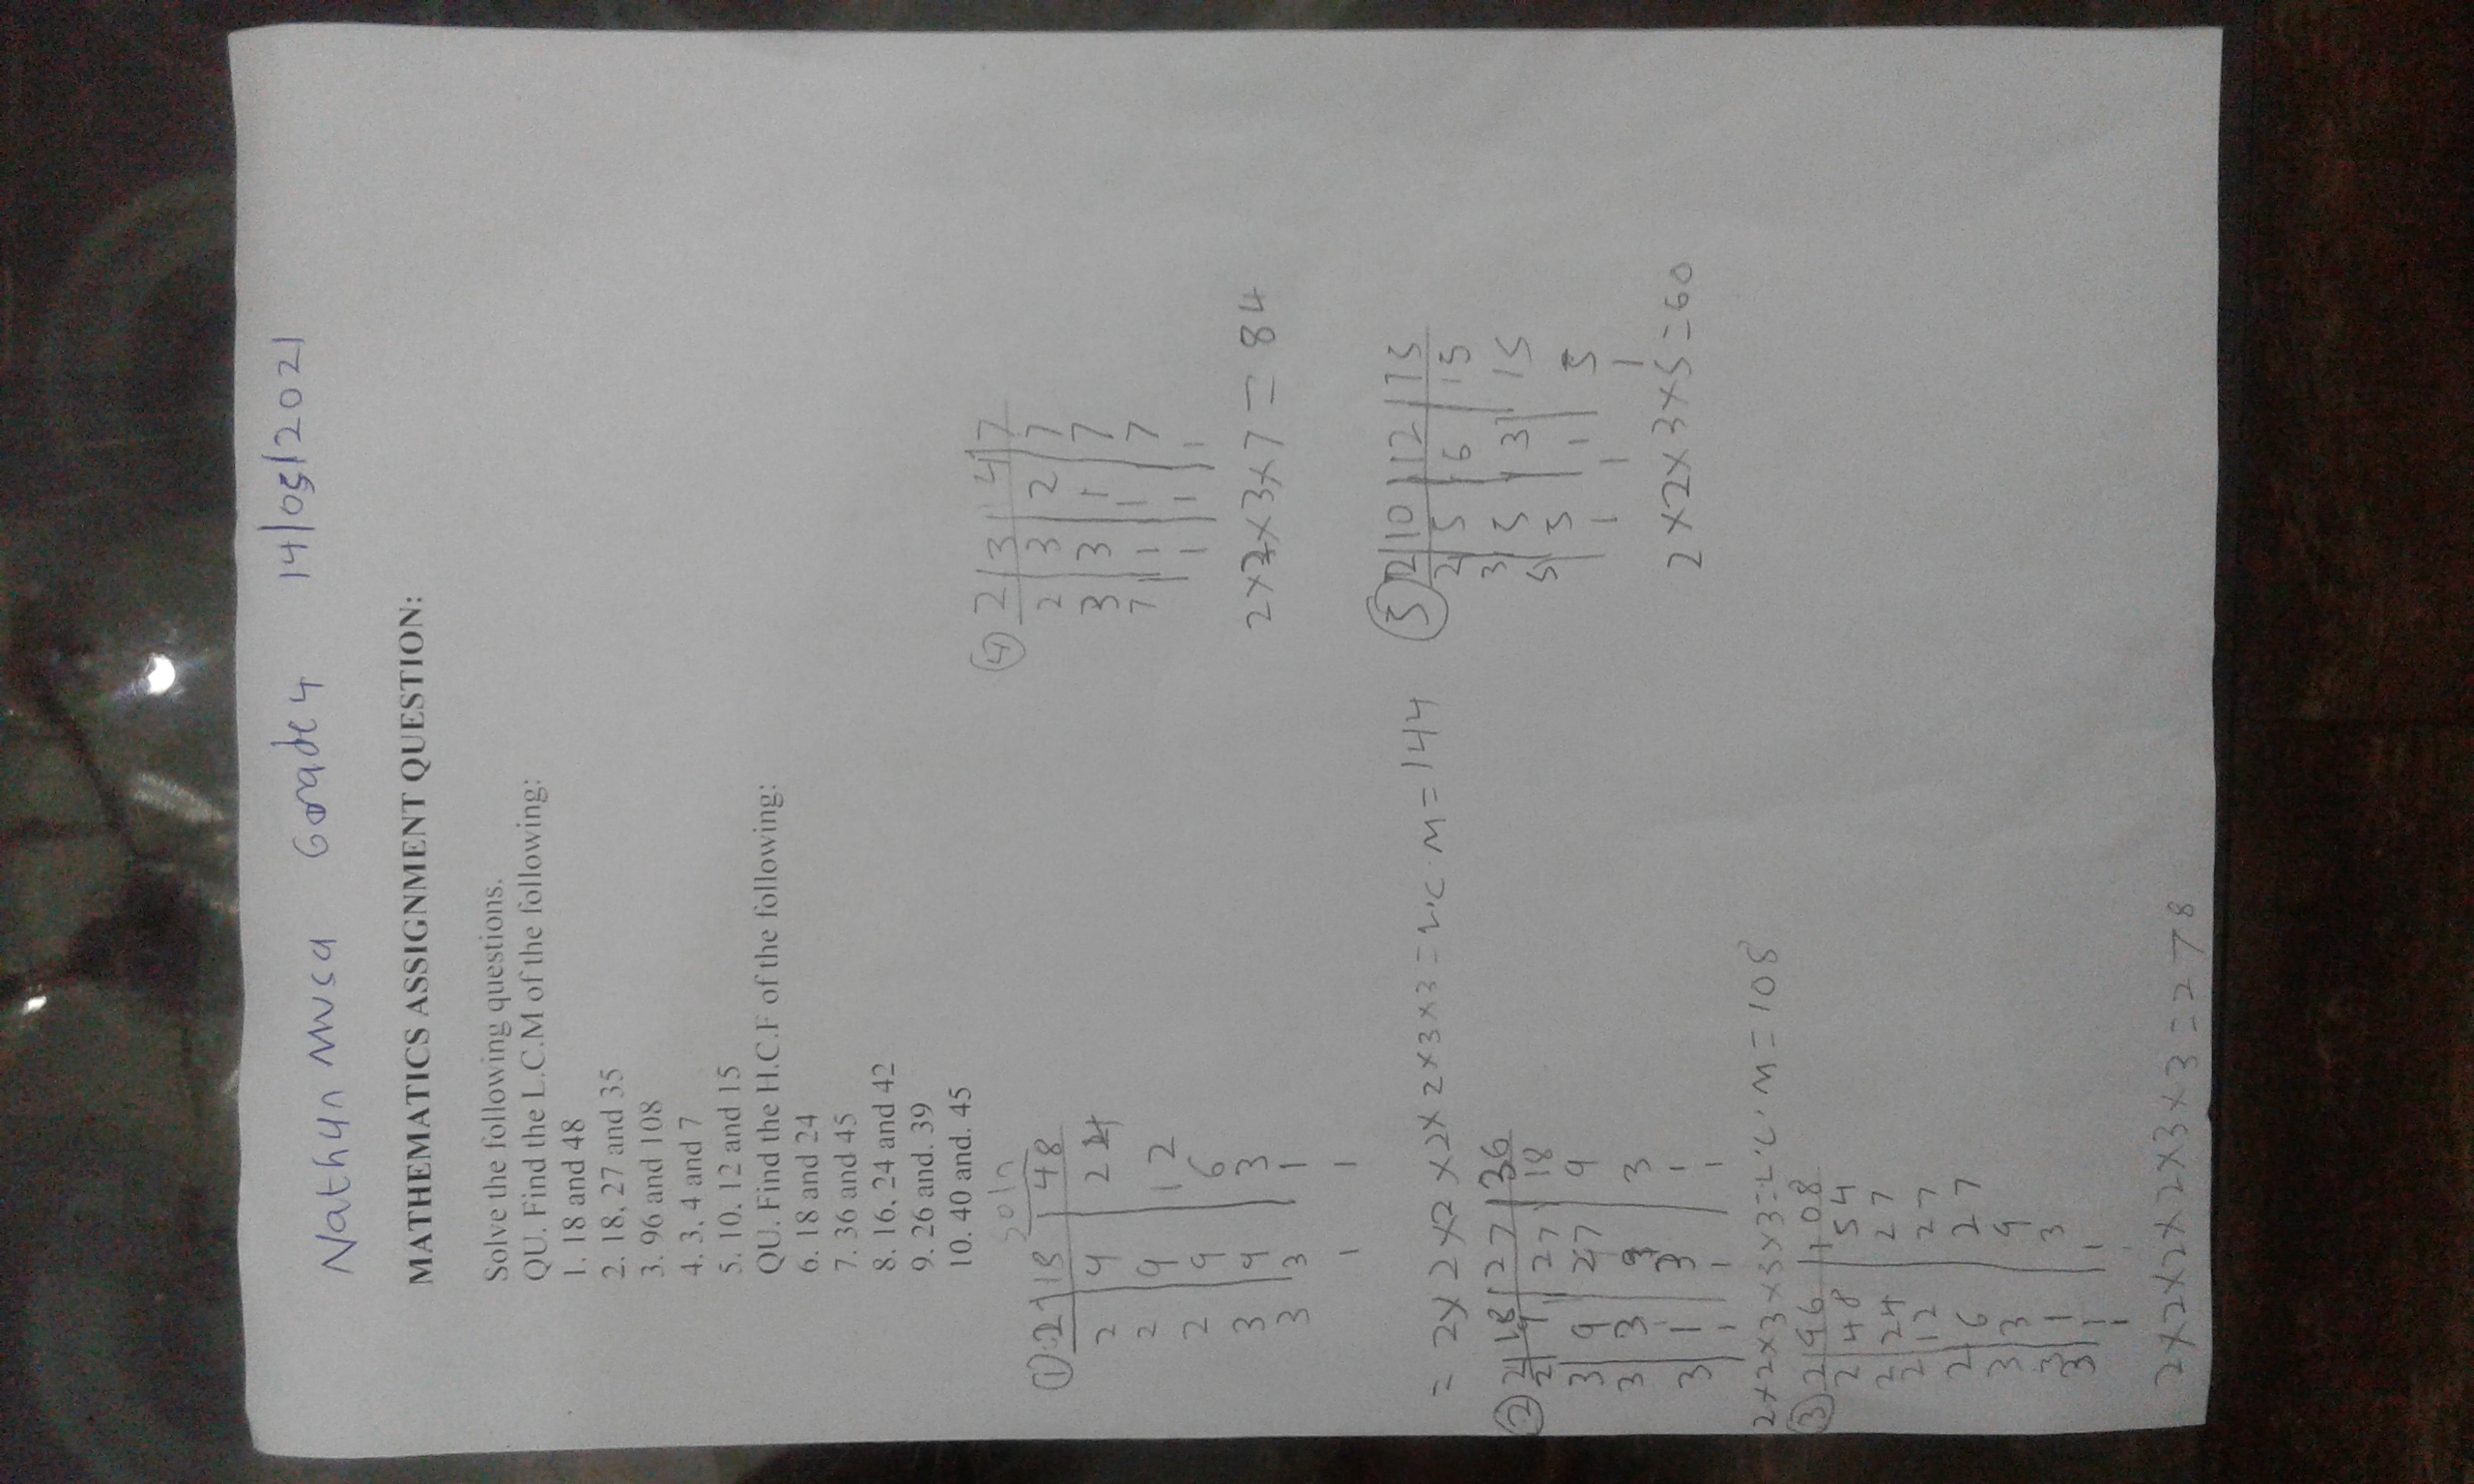 Nathan Musa Grade 4 14/05/2021
MATHEMATICS ASSIGNMENT QUESTION:
Solve the following questions.
QU. Find the L.C.M of the following:
1. 18 and 48
2. 18, 27 and 35
3. 96 and 108
4. 3, 4 and 7
5. 10, 12 and 15
QU. Find the H.C.F of the following:
6. 18 and 24
7. 36 and 45
8. 16, 24 and 42
9. 26 and. 39
10. 40 and. 45
soln
① 2 18 48
2 9 24
2 9 12
2 9 6
3 9 3
3 3 1
1 1
= 2x2x2x2x2x3x3=L.C.M=144
② 2 18 27 36
2 9 27 18
3 9 27 9
3 3 9 3
3 1 3 1
1 1 1
2x2x3x3x3=L.C.M=108
③ 2 96 108
2 48 54
2 24 27
2 12 27
2 6 27
3 3 9
3 1 3
3 1 1
1
2x2x2x2x3x3=278
④ 2 3 4 7
2 3 2 7
3 3 1 7
7 1 1 7
1 1 1
2x2x3x7=84
⑤ 2 10 12 15
2 5 6 15
3 5 3 15
5 5 1 5
1 1 1
2x2x3x5=60